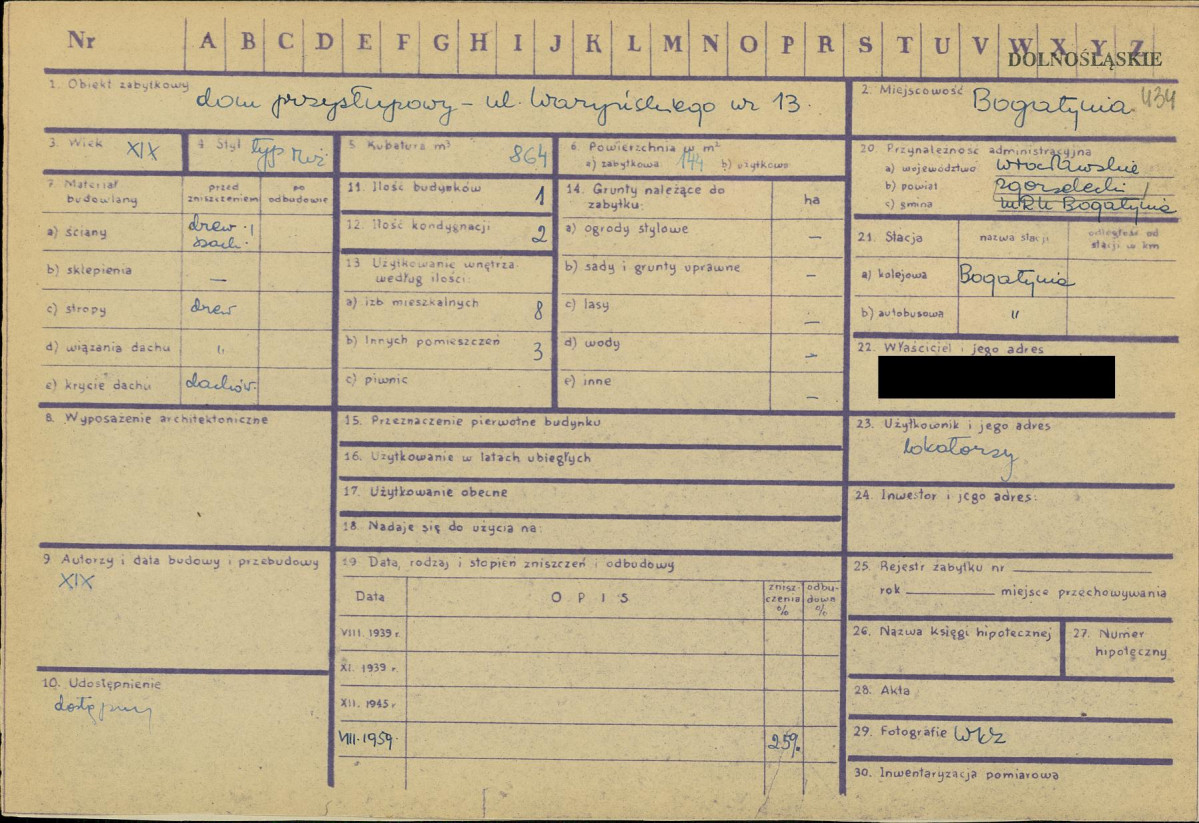 Nr A B C D E F G H I J K L M N O P R S T U V W X Y Z
DOLNOŚLĄSKIE
1. Obiekt zabytkowy
dom przysłupowy - ul. Waryńskiego nr 13.
2. Miejscowość
Bogatynia
434
3. Wiek XIX
4. Styl typ
5 Kubatura m³
864
6. Powierzchnia w m²
a) zabytkowa 144 b) użytkowa
7. Materiał budowlany
przed zniszczeniem
po odbudowie
a) ściany
drew. i
szach.
b) sklepienia
—
c) stropy
drew
d) wiązania dachu
"
e) krycie dachu
dachów.
8. Wyposażenie architektoniczne
9. Autorzy i data budowy i przebudowy
XIX
10. Udostępnienie
dostępny
11. Ilość budynków
1
12. Ilość kondygnacji
2
13 Użytkowanie wnętrza według ilości:
a) izb mieszkalnych
8
b) Innych pomieszczeń
3
c) piwnic
14. Grunty należące do zabytku:
ha
a) ogrody stylowe
—
b) sady i grunty uprawne
—
c) lasy
—
d) wody
—
e) inne
—
15. Przeznaczenie pierwotne budynku
16. Użytkowanie w latach ubiegłych
17. Użytkowanie obecne
18. Nadaje się do użycia na:
19. Data, rodzaj i stopień zniszczeń i odbudowy
Data
OPIS
znisz-
czenia
%
odbu-
dowa
%
VIII. 1939 r.
XI. 1939 r.
XII. 1945 r
VIII. 1959.
25%.
20. Przynależność administracyjna
a) województwo wrocławskie
b) powiat zgorzelecki
c) gmina Bogatynia
21. Stacja
nazwa stacji
odległość od
stacji w km
a) kolejowa
Bogatynia
b) autobusowa
"
22. Właściciel i jego adres
23. Użytkownik i jego adres
lokatorzy
24. Inwestor i jego adres:
25. Rejestr zabytku nr
rok miejsce przechowywania
26. Nazwa księgi hipotecznej
27. Numer
hipoteczny
28. Akta
29. Fotografie WKZ
30. Inwentaryzacja pomiarowa